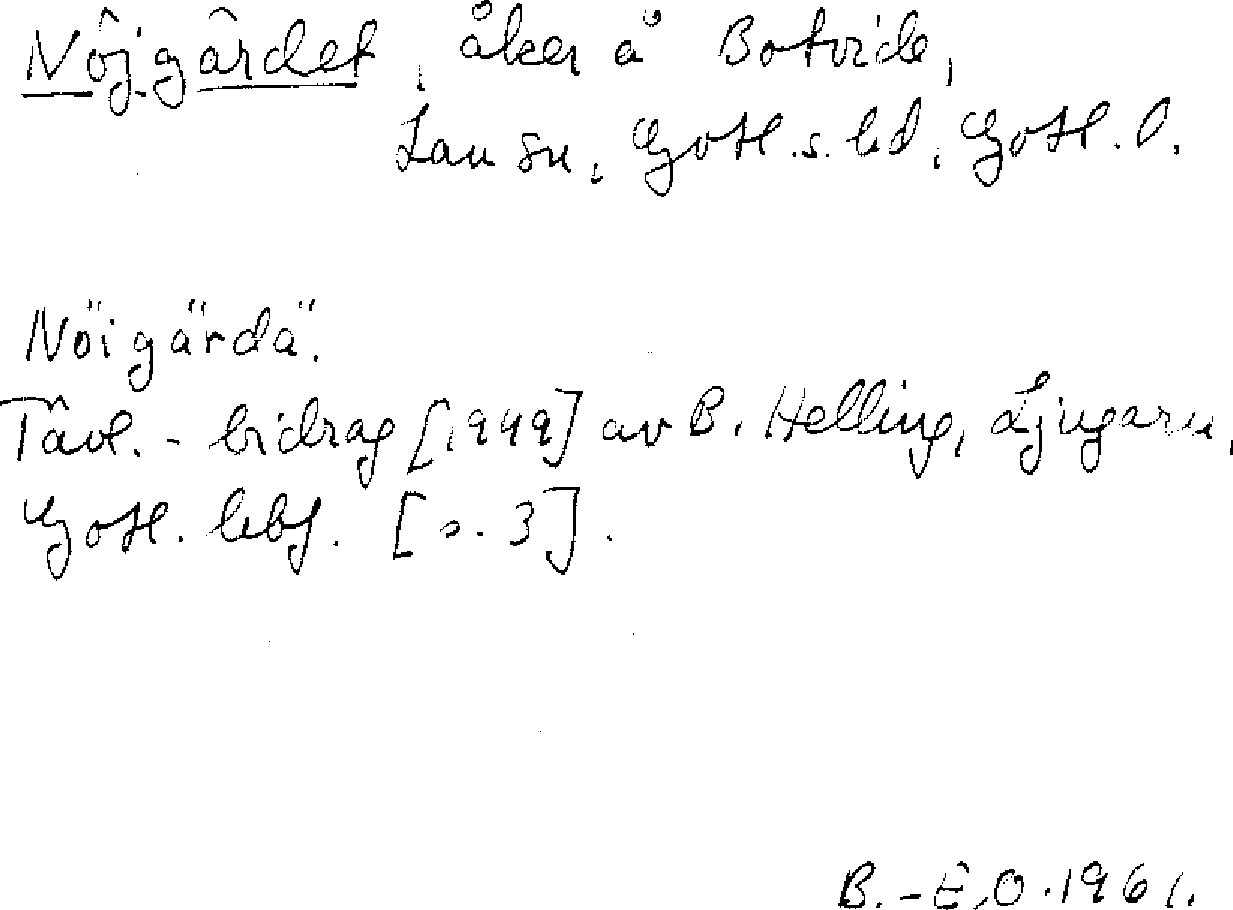 Nöjgärdet, åker å Botvide,
Lau sn, Gotl. s. hd, Gotl. l.
Nöigärdä.
Tävl.-bidrag [1949] av B. Helling, Ljugarn,
Gotl. hbf. [s. 3].
B.-E.O. 1961.